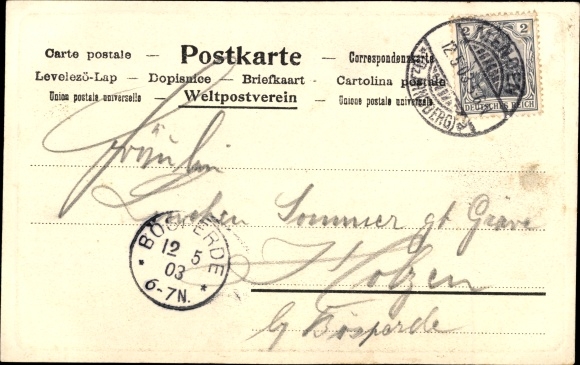 Carte postale — Postkarte — Correspondenzkarte
Levelező-Lap — Dopisnice — Briefkaart — Cartolina postale
Union postale universelle — Weltpostverein — Unione postale universale
2 2
DEUTSCHES REICH
MENDEN
12.5.03
Fräulein
Lienchen Sommer gt Grave
Holzen
by Bösperde
BÖSPERDE
12 5
03
6-7N.